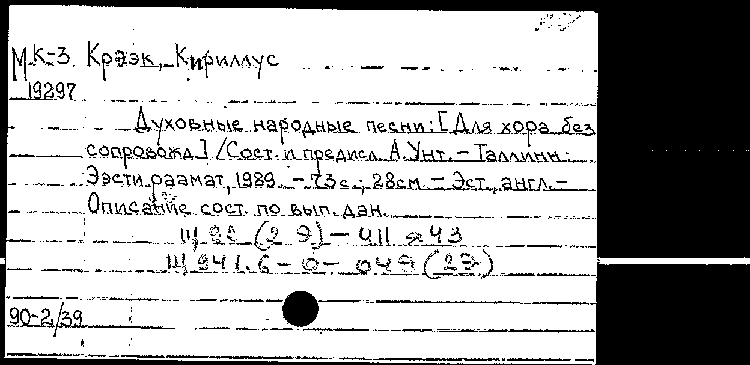 МК-3 Крээк, Кириллус
19297
Духовные народные песни: [Для хора без
сопровожд.] / Сост. и предисл. А. Унт. - Таллинн:
Ээсти раамат, 1989. - 73 с.; 28 см. - Эст., англ. -
Описание сост. по вып. дан.
Щ 92 (2 Э) - 411 я 43
Щ 941.6 - 0 - 049 (2Э)
90-2/39